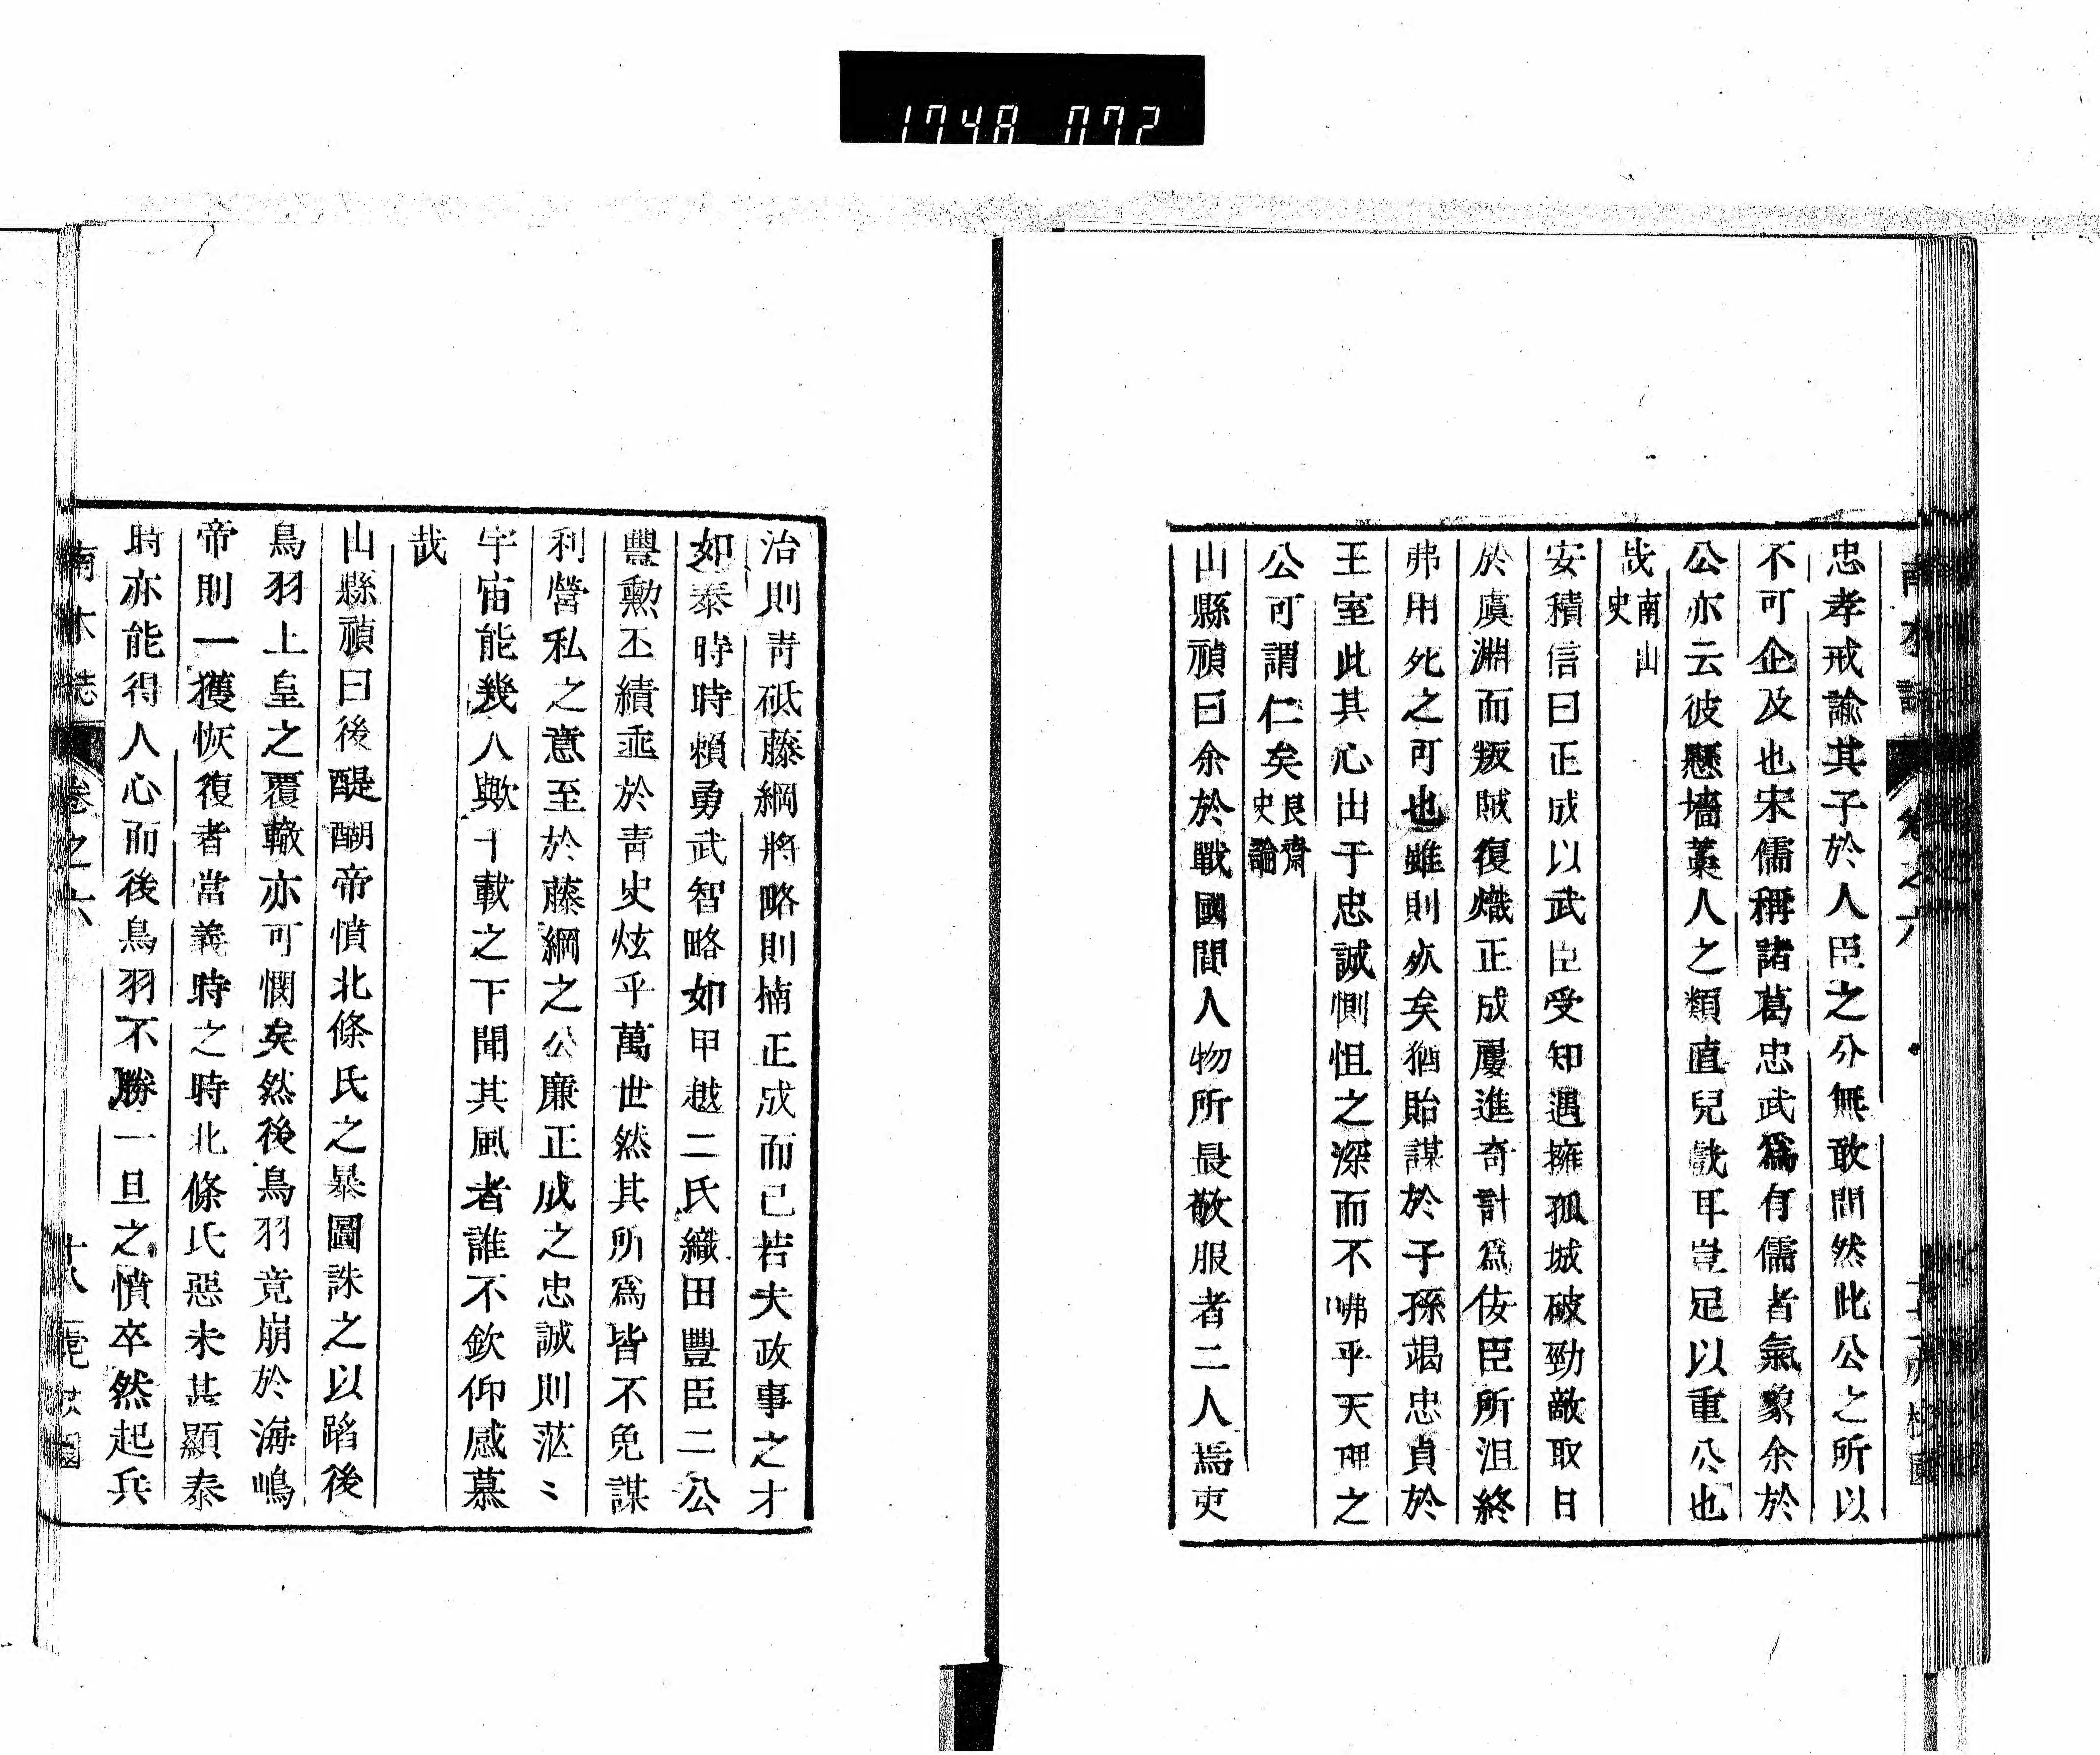 1748 072
忠孝戒諭其子於人臣之分無敢間然此公之所以
不可企及也宋儒稱諸葛忠武爲有儒者氣象余於
公亦云彼懸墻藁人之類直兒戲耳豈足以重公也
哉南山史
安積信曰正成以武臣受知遇擁孤城破勁敵取日
於虞淵而叛賊復熾正成屢進奇計爲侫臣所沮終
弗用死之可也雖則死矣猶貽謀於子孫竭忠貞於
王室此其心出于忠誠惻怛之深而不咈乎天理之
公可謂仁矣艮齋史論
山縣禎曰余於戰國間人物所最敬服者二人焉吏
治則青砥藤綱將略則楠正成而已若夫政事之才
如泰時時賴勇武智略如甲越二氏織田豐臣二公
豐勲丕績垂於青史炫乎萬世然其所爲皆不免謀
利營私之意至於藤綱之公廉正成之忠誠則茫〻
宇宙能幾人歟千載之下聞其風者誰不欽仰感慕
哉
山縣禎曰後醍醐帝憤北條氏之暴圖誅之以蹈後
鳥羽上皇之覆轍亦可憫矣然後鳥羽竟崩於海嶋
帝則一獲恢復者當義時之時北條氏惡未甚顯泰
時亦能得人心而後鳥羽不勝一旦之憤卒然起兵
南木誌 卷之六 十八